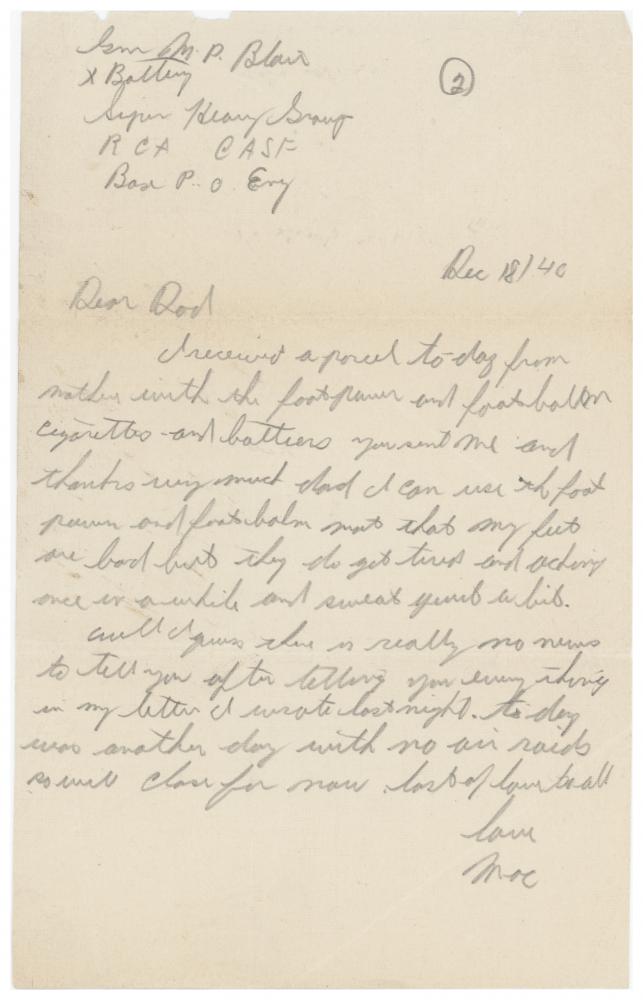 Gnr M. P. Blair
X Battery
②
Super Heavy Group
RCA CASF
Base P. O. Eng
Dec 18/40
Dear Dad
I received a parcel to day from
mother with the foot and foot balm
cigarettes and you sent me and
thanks very much dad I can use th foot
and foot balm not that my feet
are bad but they do get tired and aching
once in a while and sweat quite a bit.
well I guess there is really no news
to tell you after telling you every thing
in my letter I wrote last night. to day
was another day with no air raids
so will close for now. lots of love to all
love
Mac